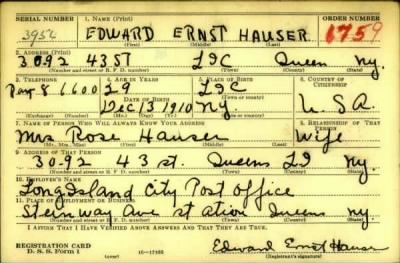 SERIAL NUMBER 1. NAME (Print) ORDER NUMBER
3954 EDWARD ERNST HAUSER 1759
(First) (Middle) (Last)
2. ADDRESS (Print)
3092 43 ST LIC Queens Ny.
(Number and street or R. F. D. number) (Town) (County) (State)
3. TELEPHONE 4. AGE IN YEARS 5. PLACE OF BIRTH 6. COUNTRY OF CITIZENSHIP
8 6600 29 LIC
DATE OF BIRTH (Town or county)
Dec 13 1910 Ny. U.S.A.
(Exchange) (Number) (Mo.) (Day) (Yr.) (State or country)
7. NAME OF PERSON WHO WILL ALWAYS KNOW YOUR ADDRESS 8. RELATIONSHIP OF THAT PERSON
Mrs Rose Hauser Wife
(Mr., Mrs., Miss) (First) (Middle) (Last)
9. ADDRESS OF THAT PERSON
30-92 43 st. Queens LI Ny.
(Number and street or R. F. D. number) (Town) (County) (State)
10. EMPLOYER'S NAME
Long Island City Post Office
11. PLACE OF EMPLOYMENT OR BUSINESS
Steinway Ave station Queens Ny
(Number and street or R. F. D. number) (Town) (County) (State)
I AFFIRM THAT I HAVE VERIFIED ABOVE ANSWERS AND THAT THEY ARE TRUE.
REGISTRATION CARD
D. S. S. Form 1 (over) Edward Ernst Hauser
(Registrant's signature)